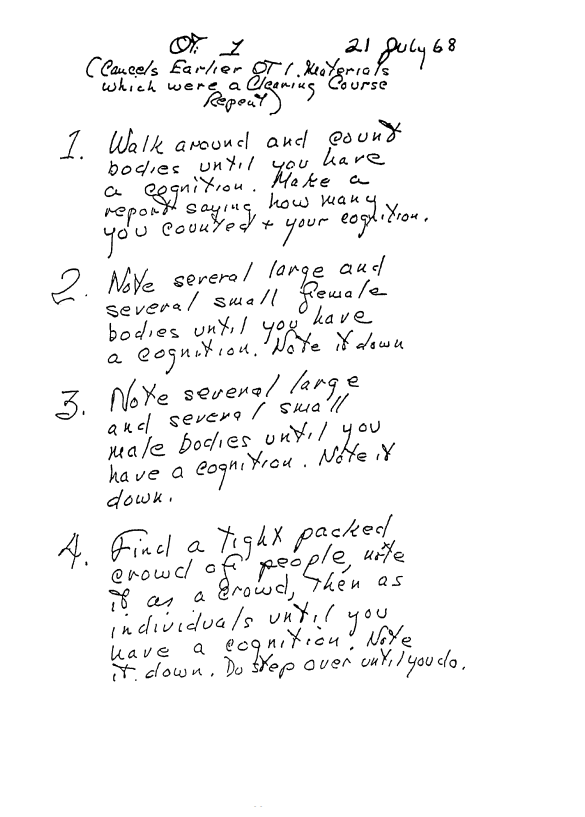 OT 1 21 July 68
(Cancels Earlier OT 1 Materials
which were a Clearing Course
Repeat)
1. Walk around and count
bodies until you have
a cognition. Make a
report saying how many
you counted + your cognition.
2. Note several large and
several small female
bodies until you have
a cognition. Note it down
3. Note several large
and several small
male bodies until you
have a cognition. Note it
down.
4. Find a tight packed
crowd of people, write
it as a crowd, then as
individuals until you
have a cognition. Note
it down. Do step over until you do.